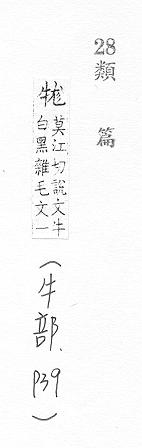 28 類篇
牻 莫江切說文牛
白黑雜毛文一
(牛部、p39)